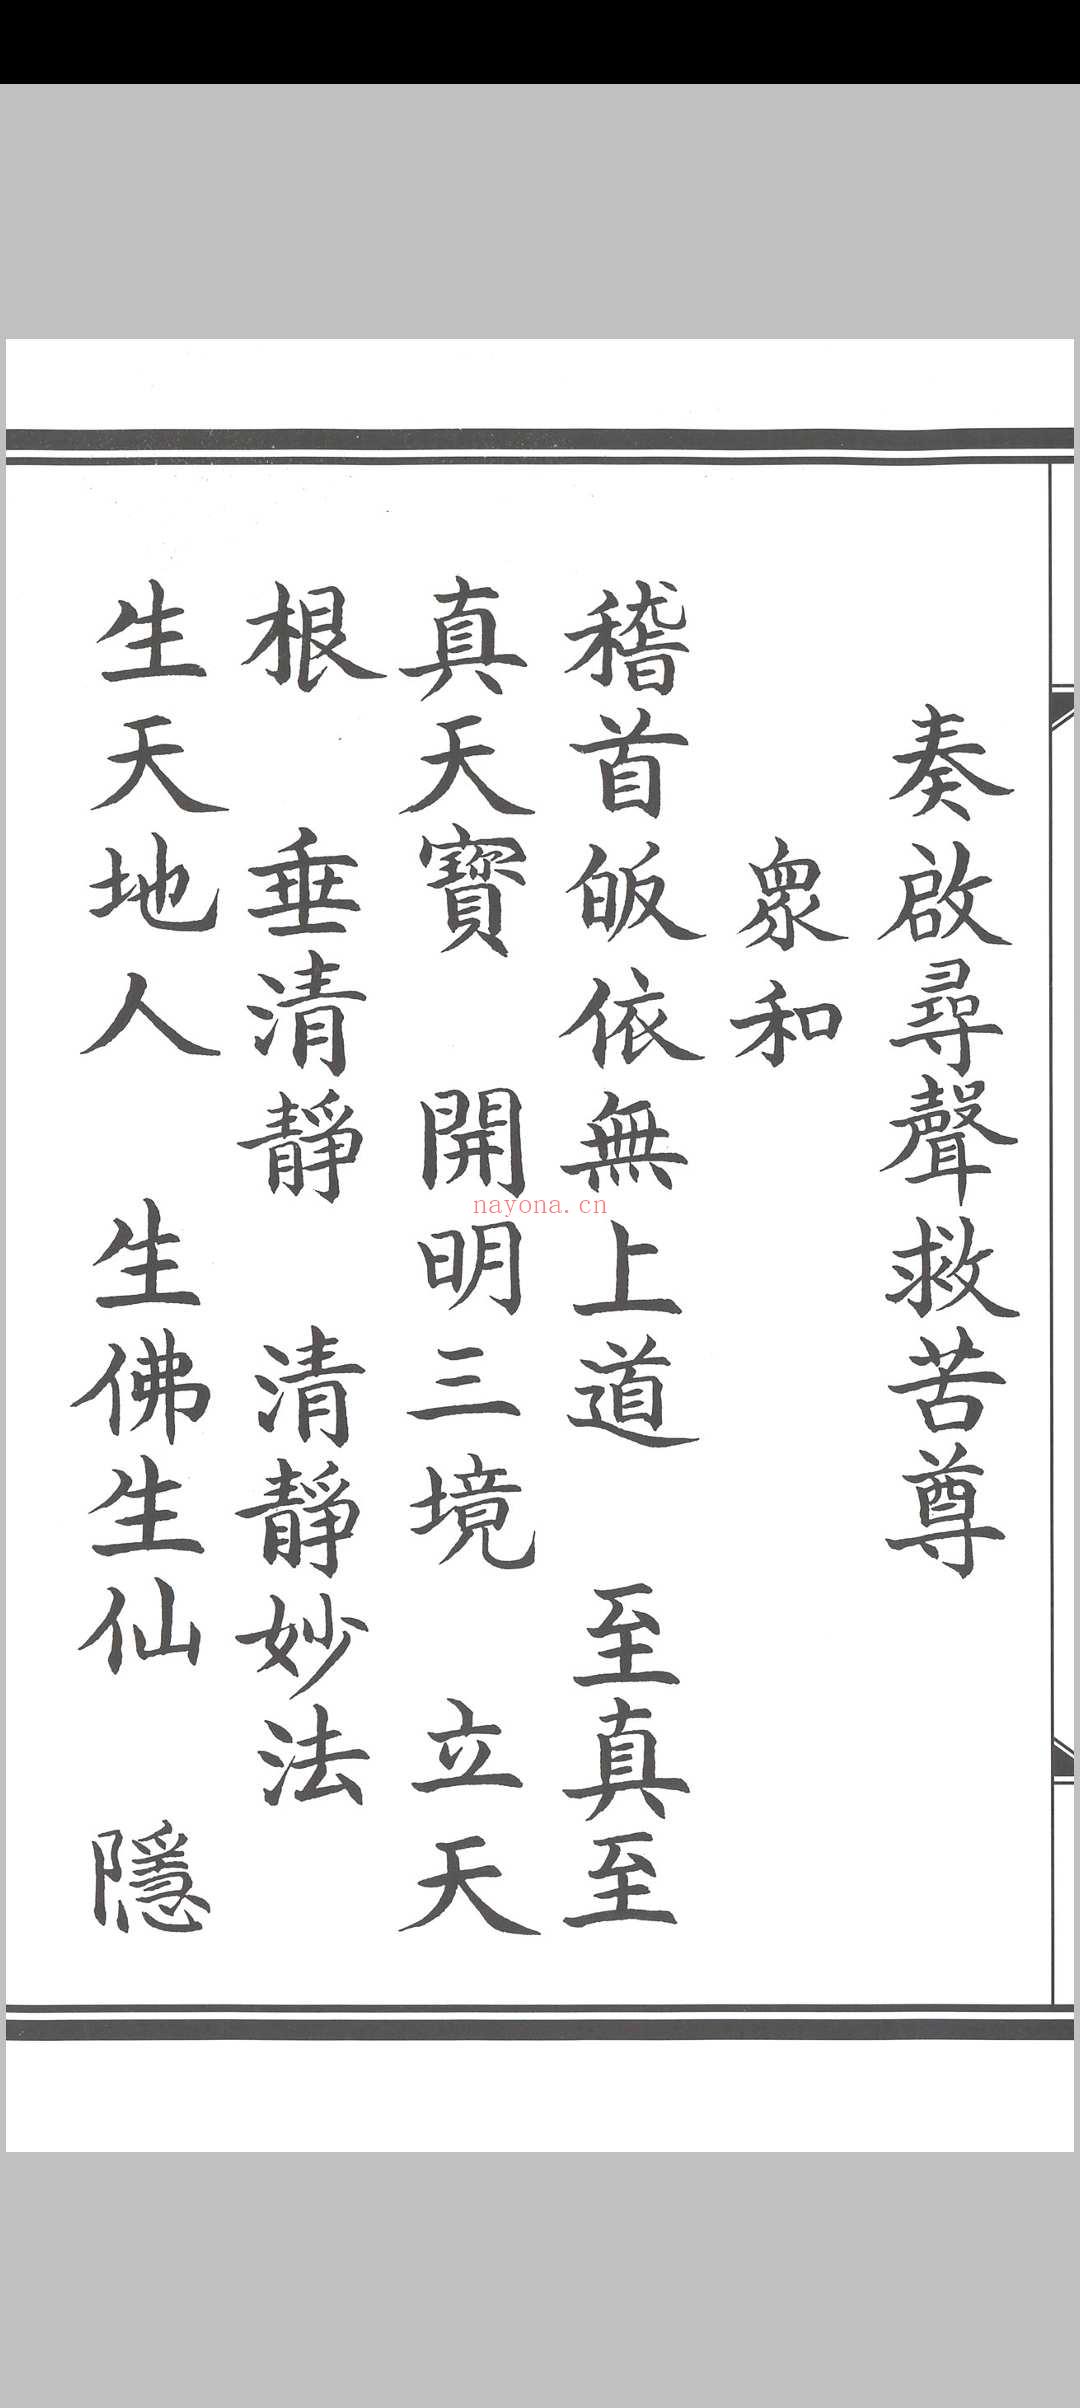 奏啟尋聲救苦尊
眾和
稽首皈依無上道 至真至
真天寶 開明三境 立天
根 垂清靜 清靜妙法
生天地人 生佛生仙 隱
nayona.cn